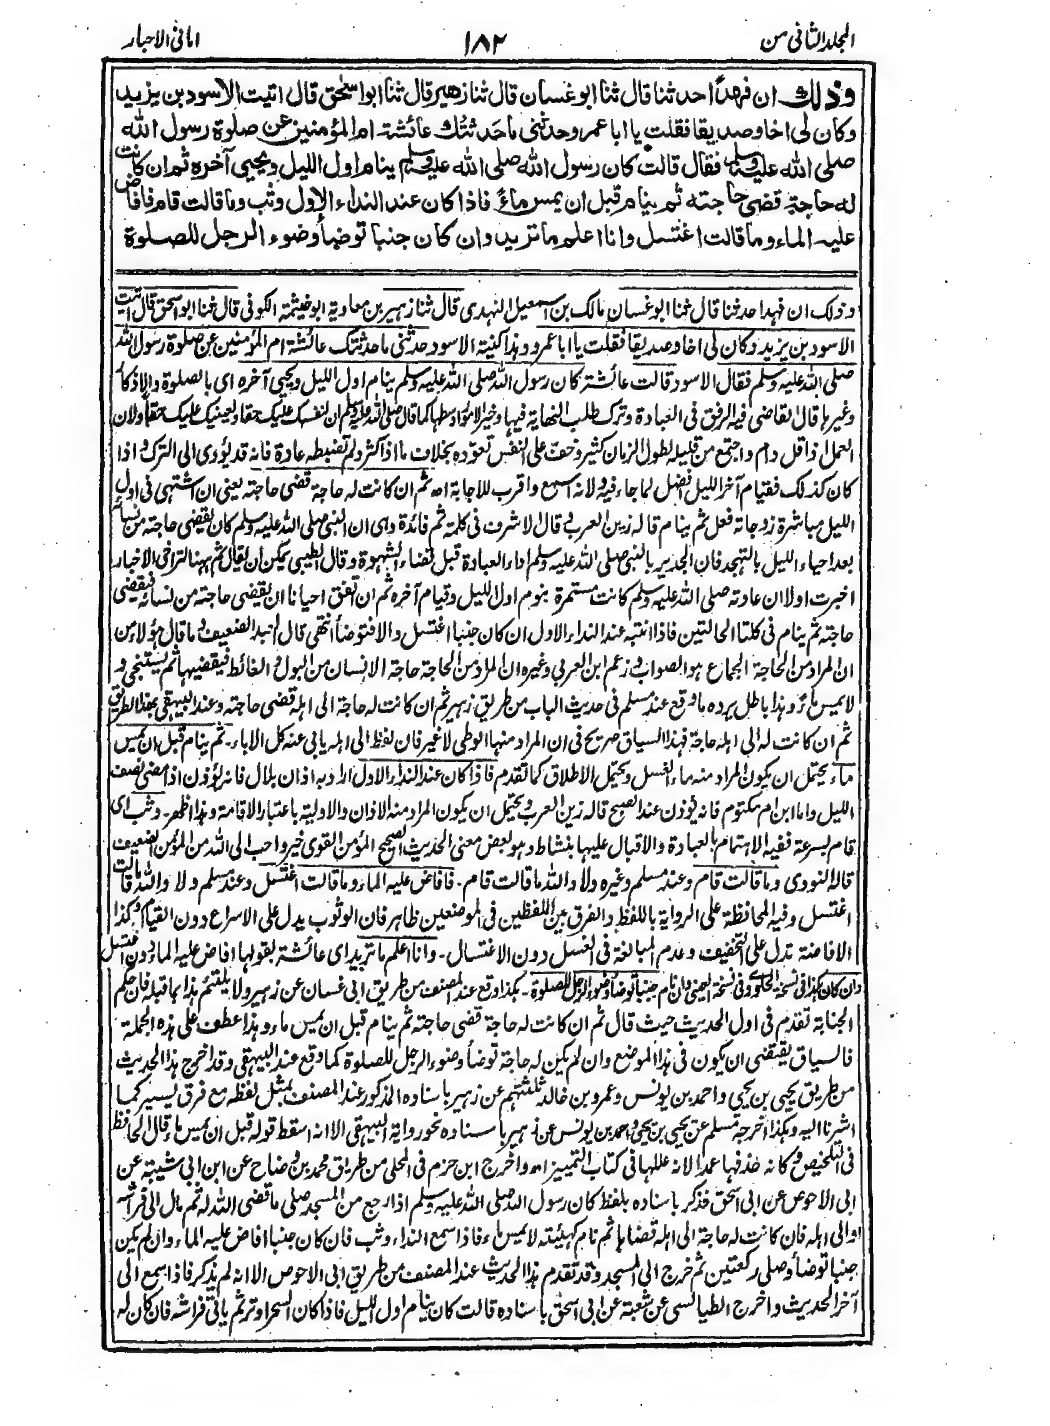 المجلد الثانى من ١٨٢ امانى الاحبار
وذلك ان فهدا حدثنا قال ثنا ابو غسان قال ثنا زهير قال ثنا ابو اسحق قال اتيت الاسود بن يزيد
وكان لى اخا وصديقا فقلت يا ابا عمرو حدثنى ما حدثتك عائشة ام المؤمنين عن صلوة رسول الله
صلى الله عليه وسلم فقال قالت كان رسول الله صلى الله عليه وسلم ينام اول الليل ويحيى آخره ثم ان كانت
له حاجة قضى حاجته ثم ينام قبل ان يمس ماء فاذا كان عند النداء الاول وثب وما قالت قام فافاض
عليه الماء وما قالت اغتسل وانا اعلم ما تريد وان كان جنبا توضأ وضوء الرجل للصلوة
وذلك ان فهدا حدثنا قال ثنا ابو غسان مالك بن اسمعيل النهدى قال ثنا زهير بن معاوية ابو خيثمة الكوفى قال ثنا ابو اسحق قال اتيت
الاسود بن يزيد وكان لى اخا وصديقا فقلت يا ابا عمرو وهذا كنية الاسود حدثنى ما حدثتك عائشة ام المؤمنين عن صلوة رسول الله
صلى الله عليه وسلم فقال الاسود قالت عائشة كان رسول الله صلى الله عليه وسلم ينام اول الليل ويحيى آخره اى بالصلوة والاذكار
وغيرها قال القاضى فيه الرفق فى العبادة وترك طلب النهاية فيها وخير الامور اوسطها كما قال صلى الله عليه وسلم ان لنفسك عليك حقا ولعينك عليك حقا ولان
العمل اذا قل دام واجتمع من قليله لطول الزمان كثير وخف على النفس تعوده بخلاف ما اذا كثر ولم تضبطه عادة فانه قد يؤدى الى الترك واذا
كان كذلك فقيام آخر الليل افضل لما جاء فيه ولانه اسمع واقرب للاجابة اه ثم ان كانت له حاجة قضى حاجته يعنى ان اشتهى فى اول
الليل مباشرة زوجاته فعل ثم ينام قاله زين العرب قال الاشرف فى كلمة ثم فائدة وهى ان النبى صلى الله عليه وسلم كان يقضى حاجته من نسائه
بعد احياء الليل بالتهجد فان الجدير بالنبى صلى الله عليه وسلم اداء العبادة قبل قضاء الشهوة وقال الطيبى يمكن ان يقال ثم ههنا لتراخى الاخبار
اخبرت اولا ان عادته صلى الله عليه وسلم كانت مستمرة بنوم اول الليل وقيام آخره ثم ان تفق احيانا ان يقضى حاجته من نسائه فيقضى
حاجته ثم ينام فى كلتا الحالتين فاذا انتبه عند النداء الاول ان كان جنبا اغتسل والا فتوضأ انتهى قال العبد الضعيف ما قال هؤلاء من
ان المراد من الحاجة الجماع هو الصواب وزعم ابن العربى وغيره ان المراد من الحاجة حاجة الانسان من البول والغائط فيقضيها ثم يستنجى و
لا يمس ماء وهذا باطل يرده ما وقع عند مسلم فى حديث الباب من طريق زهير ثم ان كانت له حاجة الى اهله قضى حاجته وعند البيهقى بهذا الطريق
ثم ان كانت له الى اهله حاجة فهذا السياق صريح فى ان المراد منها الوطى لا غير فان لفظ الى اهله يابى عنه كل الاباء. ثم ينام قبل ان يمس
ماء يحتمل ان يكون المراد منه ماء الغسل ويحتمل الاطلاق كما تقدم فاذا كان عند النداء الاول اراد به اذان بلال فانه يؤذن اذا مضى نصف
الليل واما ابن ام مكتوم فانه يؤذن عند الصبح قاله زين العرب ويحتمل ان يكون المراد منه الاذان والاولية باعتبار الاقامة وهذا اظهر. وثب اى
قام بسرعة ففيه الاهتمام بالعبادة والاقبال عليها بنشاط وهو بعض معنى الحديث الصحيح المؤمن القوى خير واحب الى الله من المؤمن الضعيف
قاله النووى وما قالت قام وعند مسلم وغيره ولا والله ما قالت قام. فافاض عليه الماء وما قالت اغتسل وعند مسلم ولا والله ما قالت
اغتسل وفيه المحافظة على الرواية باللفظ والفرق بين اللفظين فى الموضعين ظاهر فان الوثوب يدل على الاسراع دون القيام وكذا
الافاضة تدل على التخفيف وعدم المبالغة فى الغسل دون الاغتسال. وانا اعلم ما تريد اى عائشة بقولها افاض عليه الماء دون اغتسل
وان كان هكذا فى نسخة الطحاوى وفى نسخة العينى وان نام جنبا توضأ وضوء الرجل للصلوة. هكذا وقع عند المصنف من طريق ابى غسان عن زهير ولا يلتئم هذا بما قبله فان حكم
الجنابة تقدم فى اول الحديث حيث قال ثم ان كانت له حاجة قضى حاجته ثم ينام قبل ان يمس ماء وهذا عطف على هذه الجملة
فالسياق يقتضى ان يكون فى هذا الموضع وان لم يكن له حاجة توضأ وضوء الرجل للصلوة كما وقع عند البيهقى وقد اخرج هذا الحديث
من طريق يحيى بن يحيى واحمد بن يونس وعمرو بن خالد ثلثتهم عن زهير باسناده المذكور عند المصنف بمثل لفظه مع فرق يسير كما
اشرنا اليه وهكذا اخرجه مسلم عن يحيى بن يحيى واحمد بن يونس عن زهير باسناده نحو رواية البيهقى الا انه اسقط قوله قبل ان يمس ماء قال الحافظ
فى التلخيص وكانه حذفها عمدا لانه عللها فى كتاب التمييز اه واخرج ابن حزم فى المحلى من طريق محمد بن وضاح عن ابن ابى شيبة عن
ابى الاحوص عن ابى اسحق فذكر باسناده بلفظ كان رسول الله صلى الله عليه وسلم اذا رجع من المسجد صلى ما قضى الله له ثم مال الى فراشه
والى اهله فان كانت له حاجة الى اهله قضاها ثم نام كهيئته لا يمس ماء فاذا سمع النداء وثب فان كان جنبا افاض عليه الماء وان لم يكن
جنبا توضأ وصلى ركعتين ثم خرج الى المسجد وقد تقدم هذا الحديث عند المصنف من طريق ابى الاحوص الا انه لم يذكر فاذا سمع الى
آخر الحديث واخرج الطيالسى عن شعبة عن ابى اسحق باسناده قالت كان ينام اول الليل فاذا كان السحر اوتر ثم ياتى فراشه فان كان له